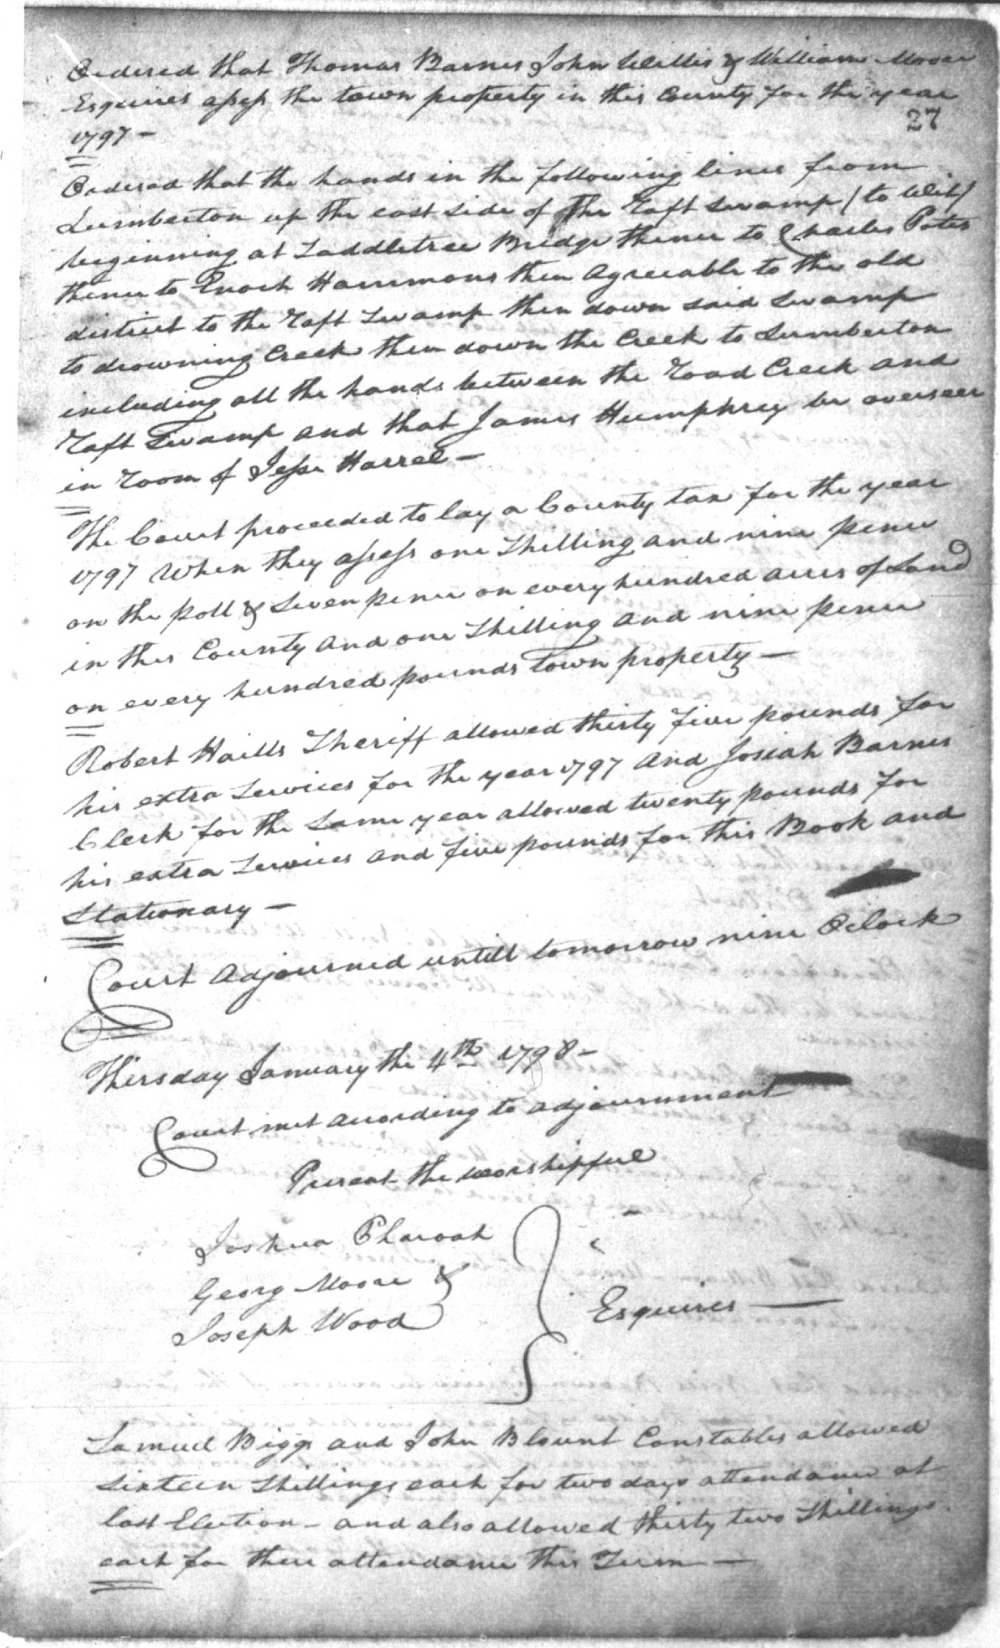 Ordered that Thomas Barnes John Willis & William Moore
Esquires assess the town property in this County for the year
27
1797 –
Ordered that the hands in the following lines from
Lumberton up the east side of the Raft Swamp (to wit)
beginning at Saddletree Bridge thence to Charles Pates
thence to Enoch Hammons then Agreeable to the old
district to the Raft Swamp then down said Swamp
to drowning Creek then down the Creek to Lumberton
including all the hands between the Road Creek and
Raft Swamp and that James Humphrey be overseer
in Room of Jesse Harrel –
The Court proceeded to lay a County tax for the year
1797 When they assess one Shilling and nine pence
on the poll & Seven pence on every hundred acres of Land
in this County and one Shilling and nine pence
on every hundred pounds town property –
Robert Hails Sheriff allowed thirty five pounds for
his extra Services for the year 1797 And Josiah Barnes
Clerk for the Same year allowed twenty pounds for
his extra Services and five pounds for this Book and
Stationary –
Court Adjourned untill tomorrow nine Oclock
Thirsday January the 4th 1798 –
Court met according to adjournment
Present the worshipfull
Joshua Pharoah
Georg Moore &
Joseph Wood
Esquires –
Samuel Biggs and John Blount Constables allowed
Sixteen Shillings each for two days attendance at
last Election – and also allowed thirty two Shillings
each for their attendance this Term –